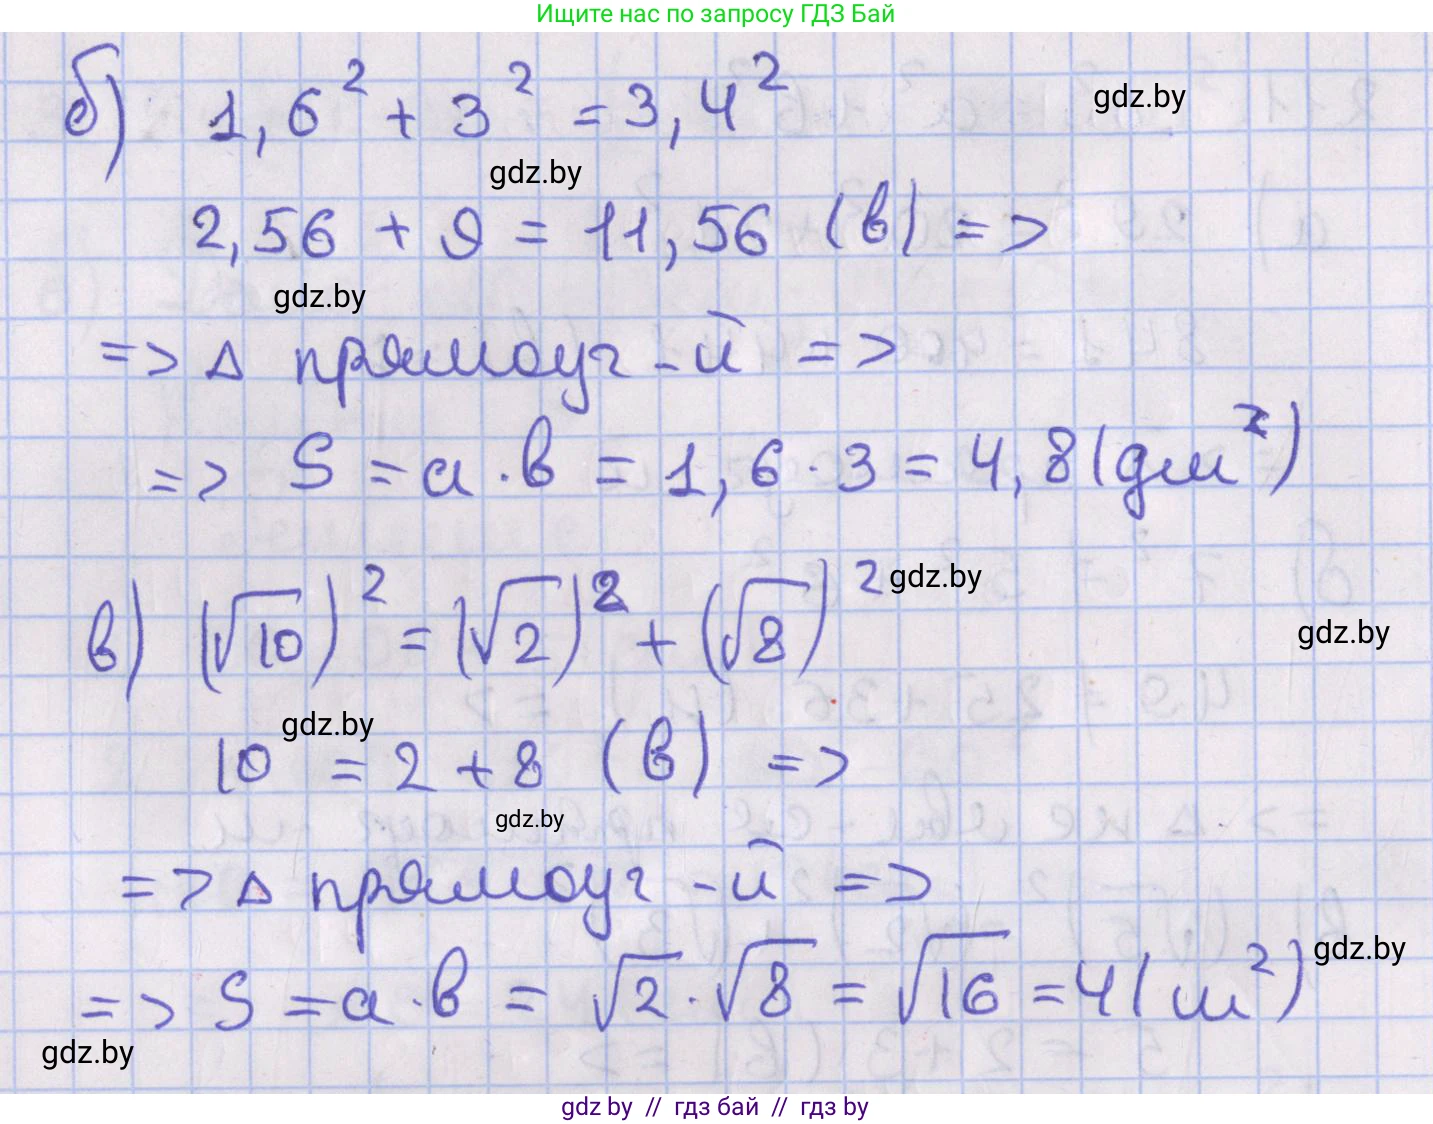 Ищите нас по запросу ГДЗ Бай
б) 1,6² + 3² = 3,4²
gdz.by
gdz.by
2,56 + 9 = 11,56 (в) =>
gdz.by
=> Δ прямоуг-й =>
=> S = a · b = 1,6 · 3 = 4,8 (дм²)
в) (√10)² = (√2)² + (√8)²
gdz.by
gdz.by
gdz.by
10 = 2 + 8 (в) =>
gdz.by
=> Δ прямоуг-й =>
gdz.by
=> S = a · b = √2 · √8 = √16 = 4 (м²)
gdz.by
gdz by // гдз бай // гдз by